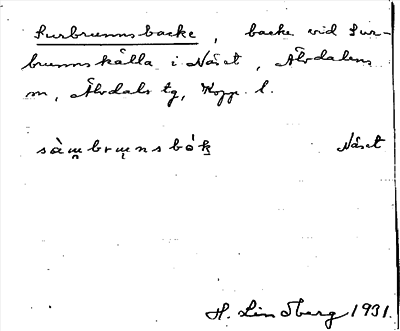 Surbrunnsbacke, backe vid Sur-
brunnskälla i Näset, Älvdalens
m, Älvdals tg, Kopp. l.
Näset
H. Lindberg 1931.